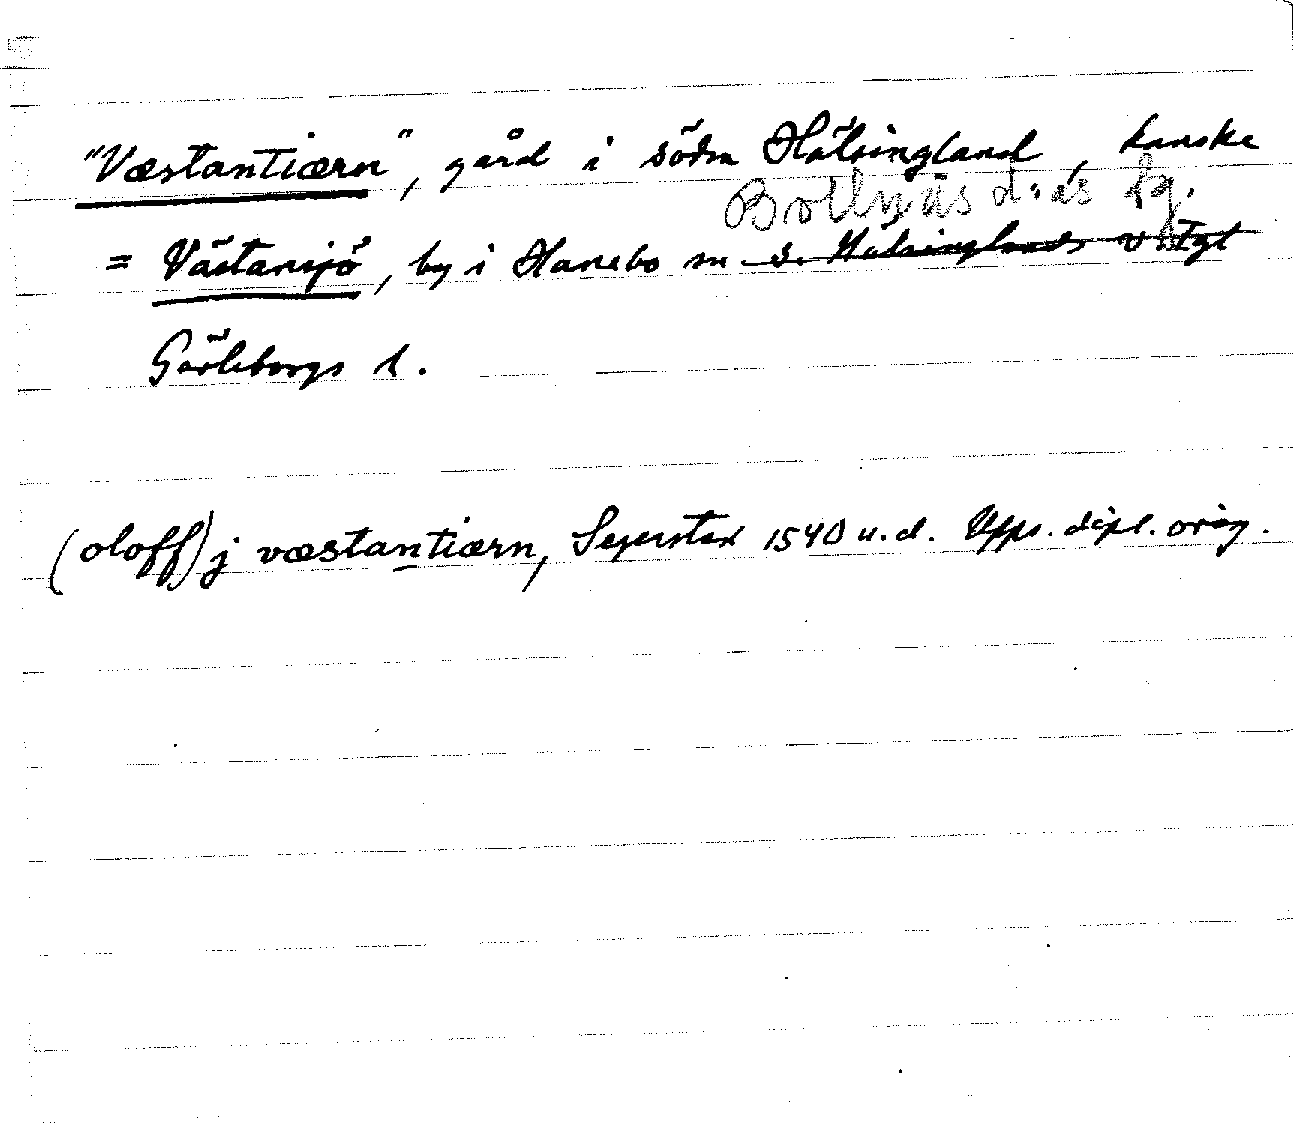 "Væstantiærn", gård i södra Hälsingland, kanske
Bollnäs d:as fg.
= Västansjö, by i Hanebo sn s. Hälsinglands v. tgl
Gävleborgs l.
(oloff) j væstantiærn, Segerstad 1540 u.d. Upps. dipl. orig.